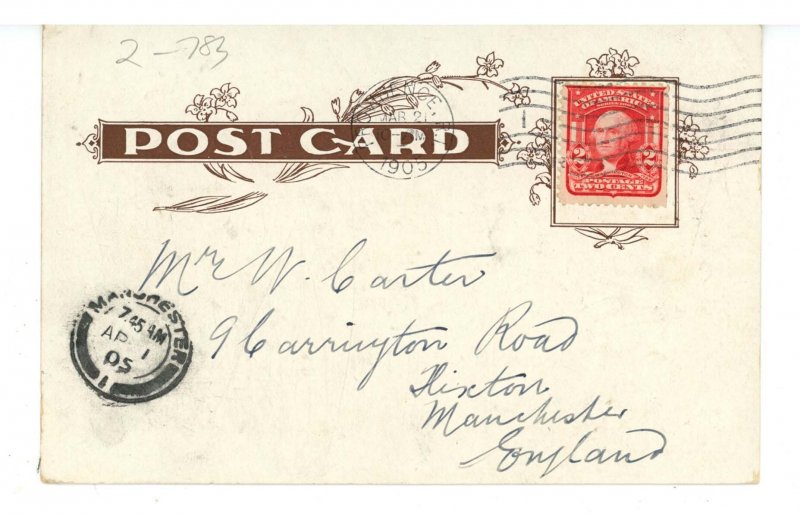 2-783
POST CARD
MAR 21
1905
UNITED STATES
OF AMERICA
2 2
POSTAGE
TWO CENTS
Mr W. Carter
9 Carrington Road
Flixton
Manchester
England
MANCHESTER
7.45 AM
AP 1
05